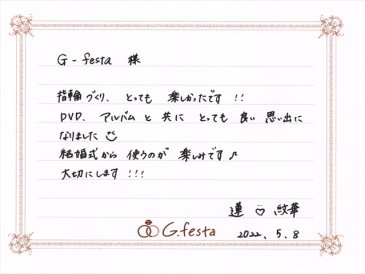 G-festa 様
指輪づくり、とっても 楽しかったです!!
DVD、アルバムと共に とっても 良い 思い出に
なりました
結婚式から 使うのが 楽しみです♪
大切にします!!!
蓮 ♡ 華
G.festa
2022.5.8